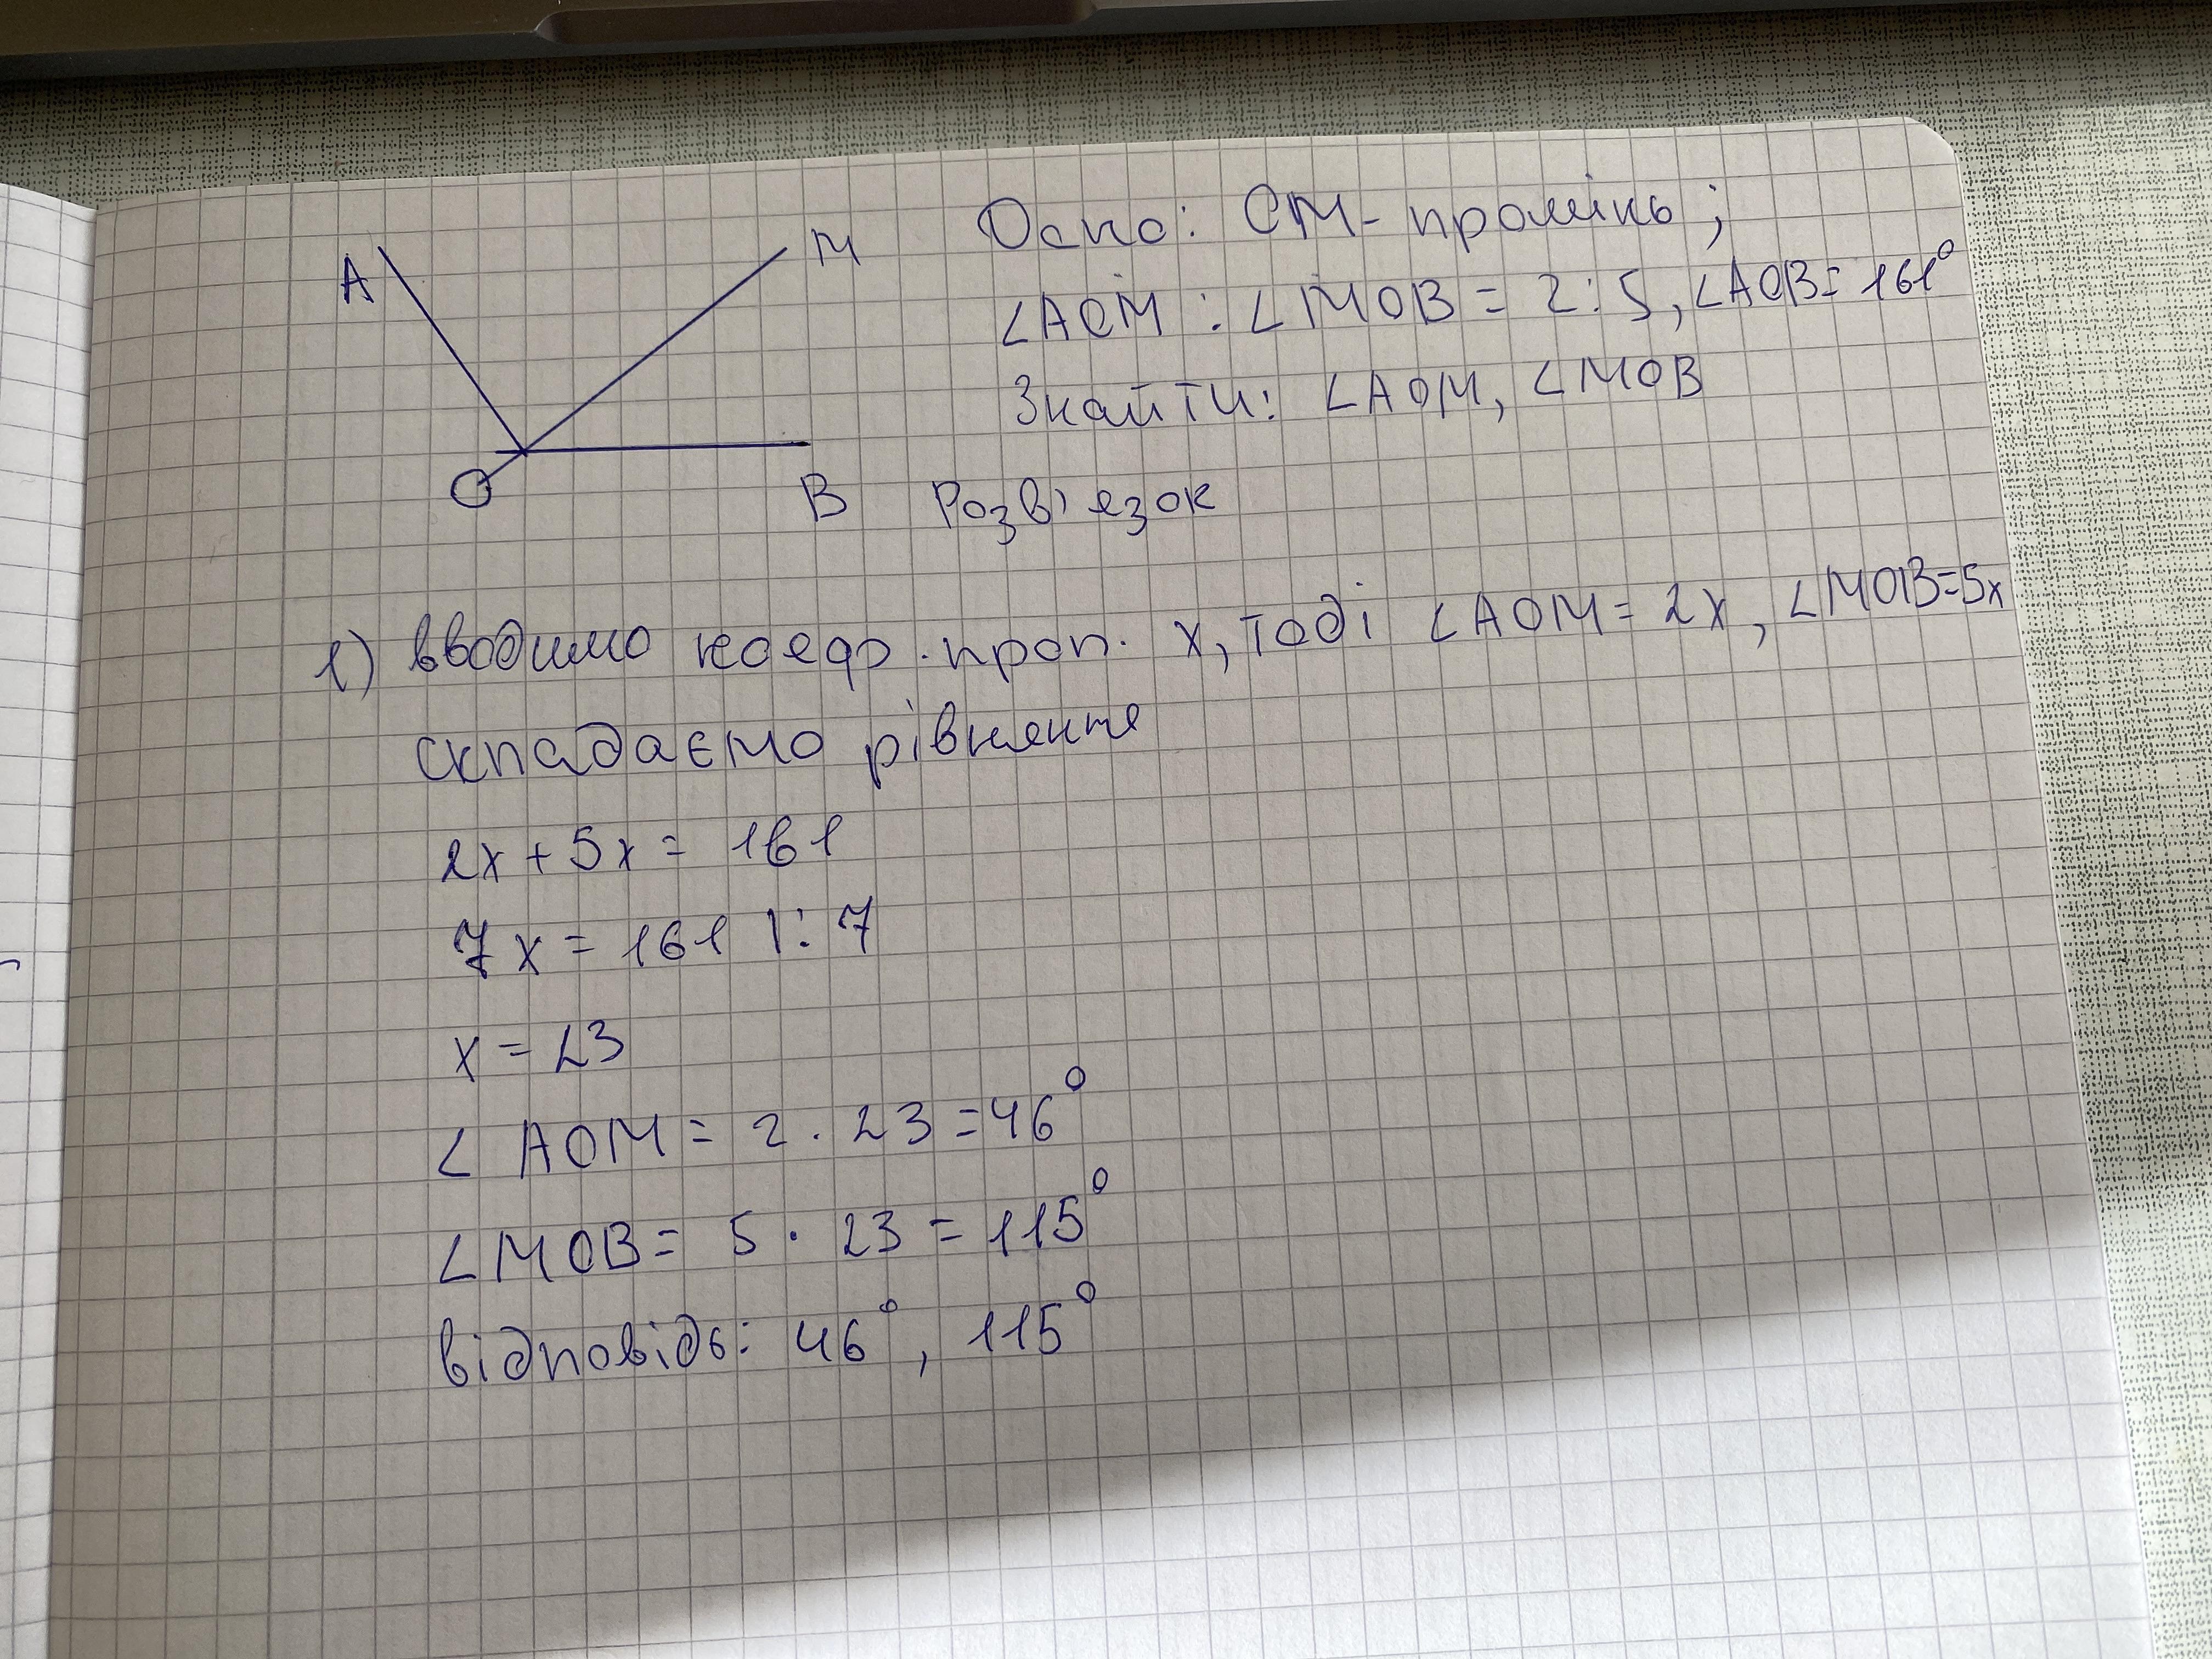 A
M
O
B
Дано: ОМ - промінь;
∠AOM : ∠MOB = 2:5, ∠AOB = 161°
Знайти: ∠AOM, ∠MOB
Розв'язок
1) вводимо коеф. проп. х, тоді ∠AOM = 2x, ∠MOB = 5x
складаємо рівняння
2x + 5x = 161
7x = 161 |: 7
x = 23
∠AOM = 2 · 23 = 46°
∠MOB = 5 · 23 = 115°
відповідь: 46°, 115°